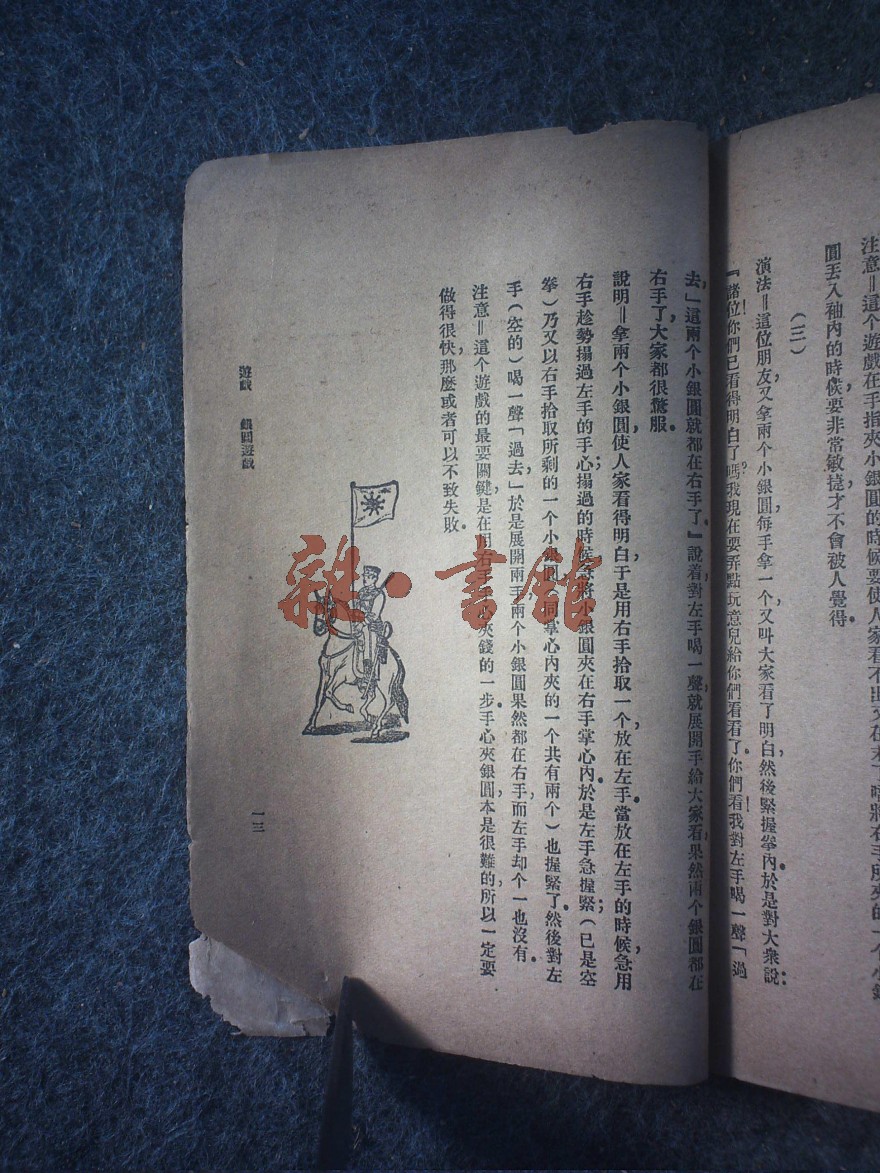 注意＝這个遊戲在手指夾小銀圓的時候要使人家看不出又在末了
圓丟入袖內的時候，要非常敏捷才不會被人覺得。
（三）
演法＝這位朋友又拿兩个小銀圓，每手拿一个，又叫大家看了明白，然後緊握拳內。於是對大衆說：
『諸位！你們已看得明白了嗎？我現在要弄點玩意兒給你們看看了。你們看！我對左手喝一聲「過
去，」這兩个小銀圓就都在右手了。』說着，對左手喝一聲，就展開手給大家看，果然兩个銀圓都在
右手了，大家都很驚服。
說明＝拿兩个小銀圓，使人家看得明白，于是用右手拾取一个，放在左手。當放在左手的時候，急用
右手趁勢搨過左手的手心；搨過的時候，急將小銀圓夾在右手掌心內。於是左手急握緊；（已是空
拳）乃又以右手拾取所剩的一个小銀圓，（同掌心內夾的一个共有兩个）也握緊了。然後對左
手（空的）喝一聲「過去，」於是展開兩手，兩个小銀圓果然都在右手，而左手却个一也沒有。
注意＝這个遊戲的最要關鍵，是在用右手手心夾錢的一步。手心夾銀圓，本是很難的，所以一定要
做得很快，那麼或者可以不致失敗。
遊戲　銀圓遊戲
一三
雜·書舘